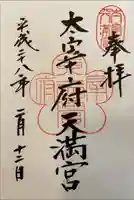 奉拝
太宰府天満宮
平成二十八年二月十二日